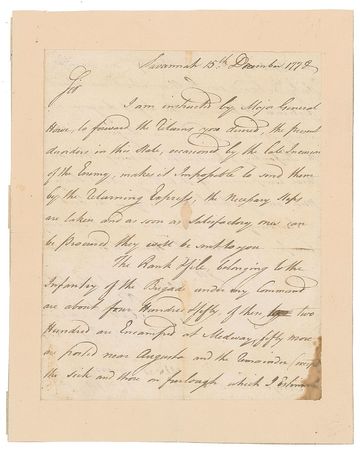 Savannah 15th December 1778
Sir
I am instructed by Major General
Howe, to forward the Returns you desired, the present
disorders in this State, occasioned by the late Incursion
of the Enemy, makes it Impossible to send them
by the Returning Express, the necessary Steps
are taken and as soon as Satisfactory ones can
be Procured they will be sent to you
The Rank & file, belonging to the
Infantry of the Brigade under my Command
are about four Hundred & fifty, of these two
Hundred are Encamped at Medway, fifty more
are posted near Augusta and the Remainder (except
the sick and those on furlough which I